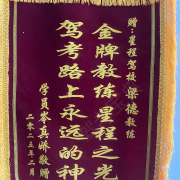 赠：星程驾校 梁德教练
金牌教练星程之光
驾考路上永远的神
学员岑真骄敬赠
二零二五年二月